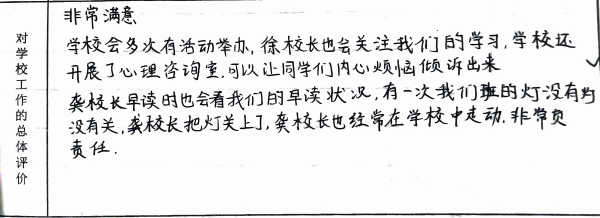 对学校工作的总体评价
非常满意
学校会多次有活动举办,徐校长也会关注我们的学习,学校还
开展了心理咨询室,可以让同学们内心烦恼倾诉出来
龚校长早读时也会看我们的早读状况,有一次我们班的灯没有灯
没有关,龚校长把灯关上了,龚校长也经常在学校中走动.非常负
责任.